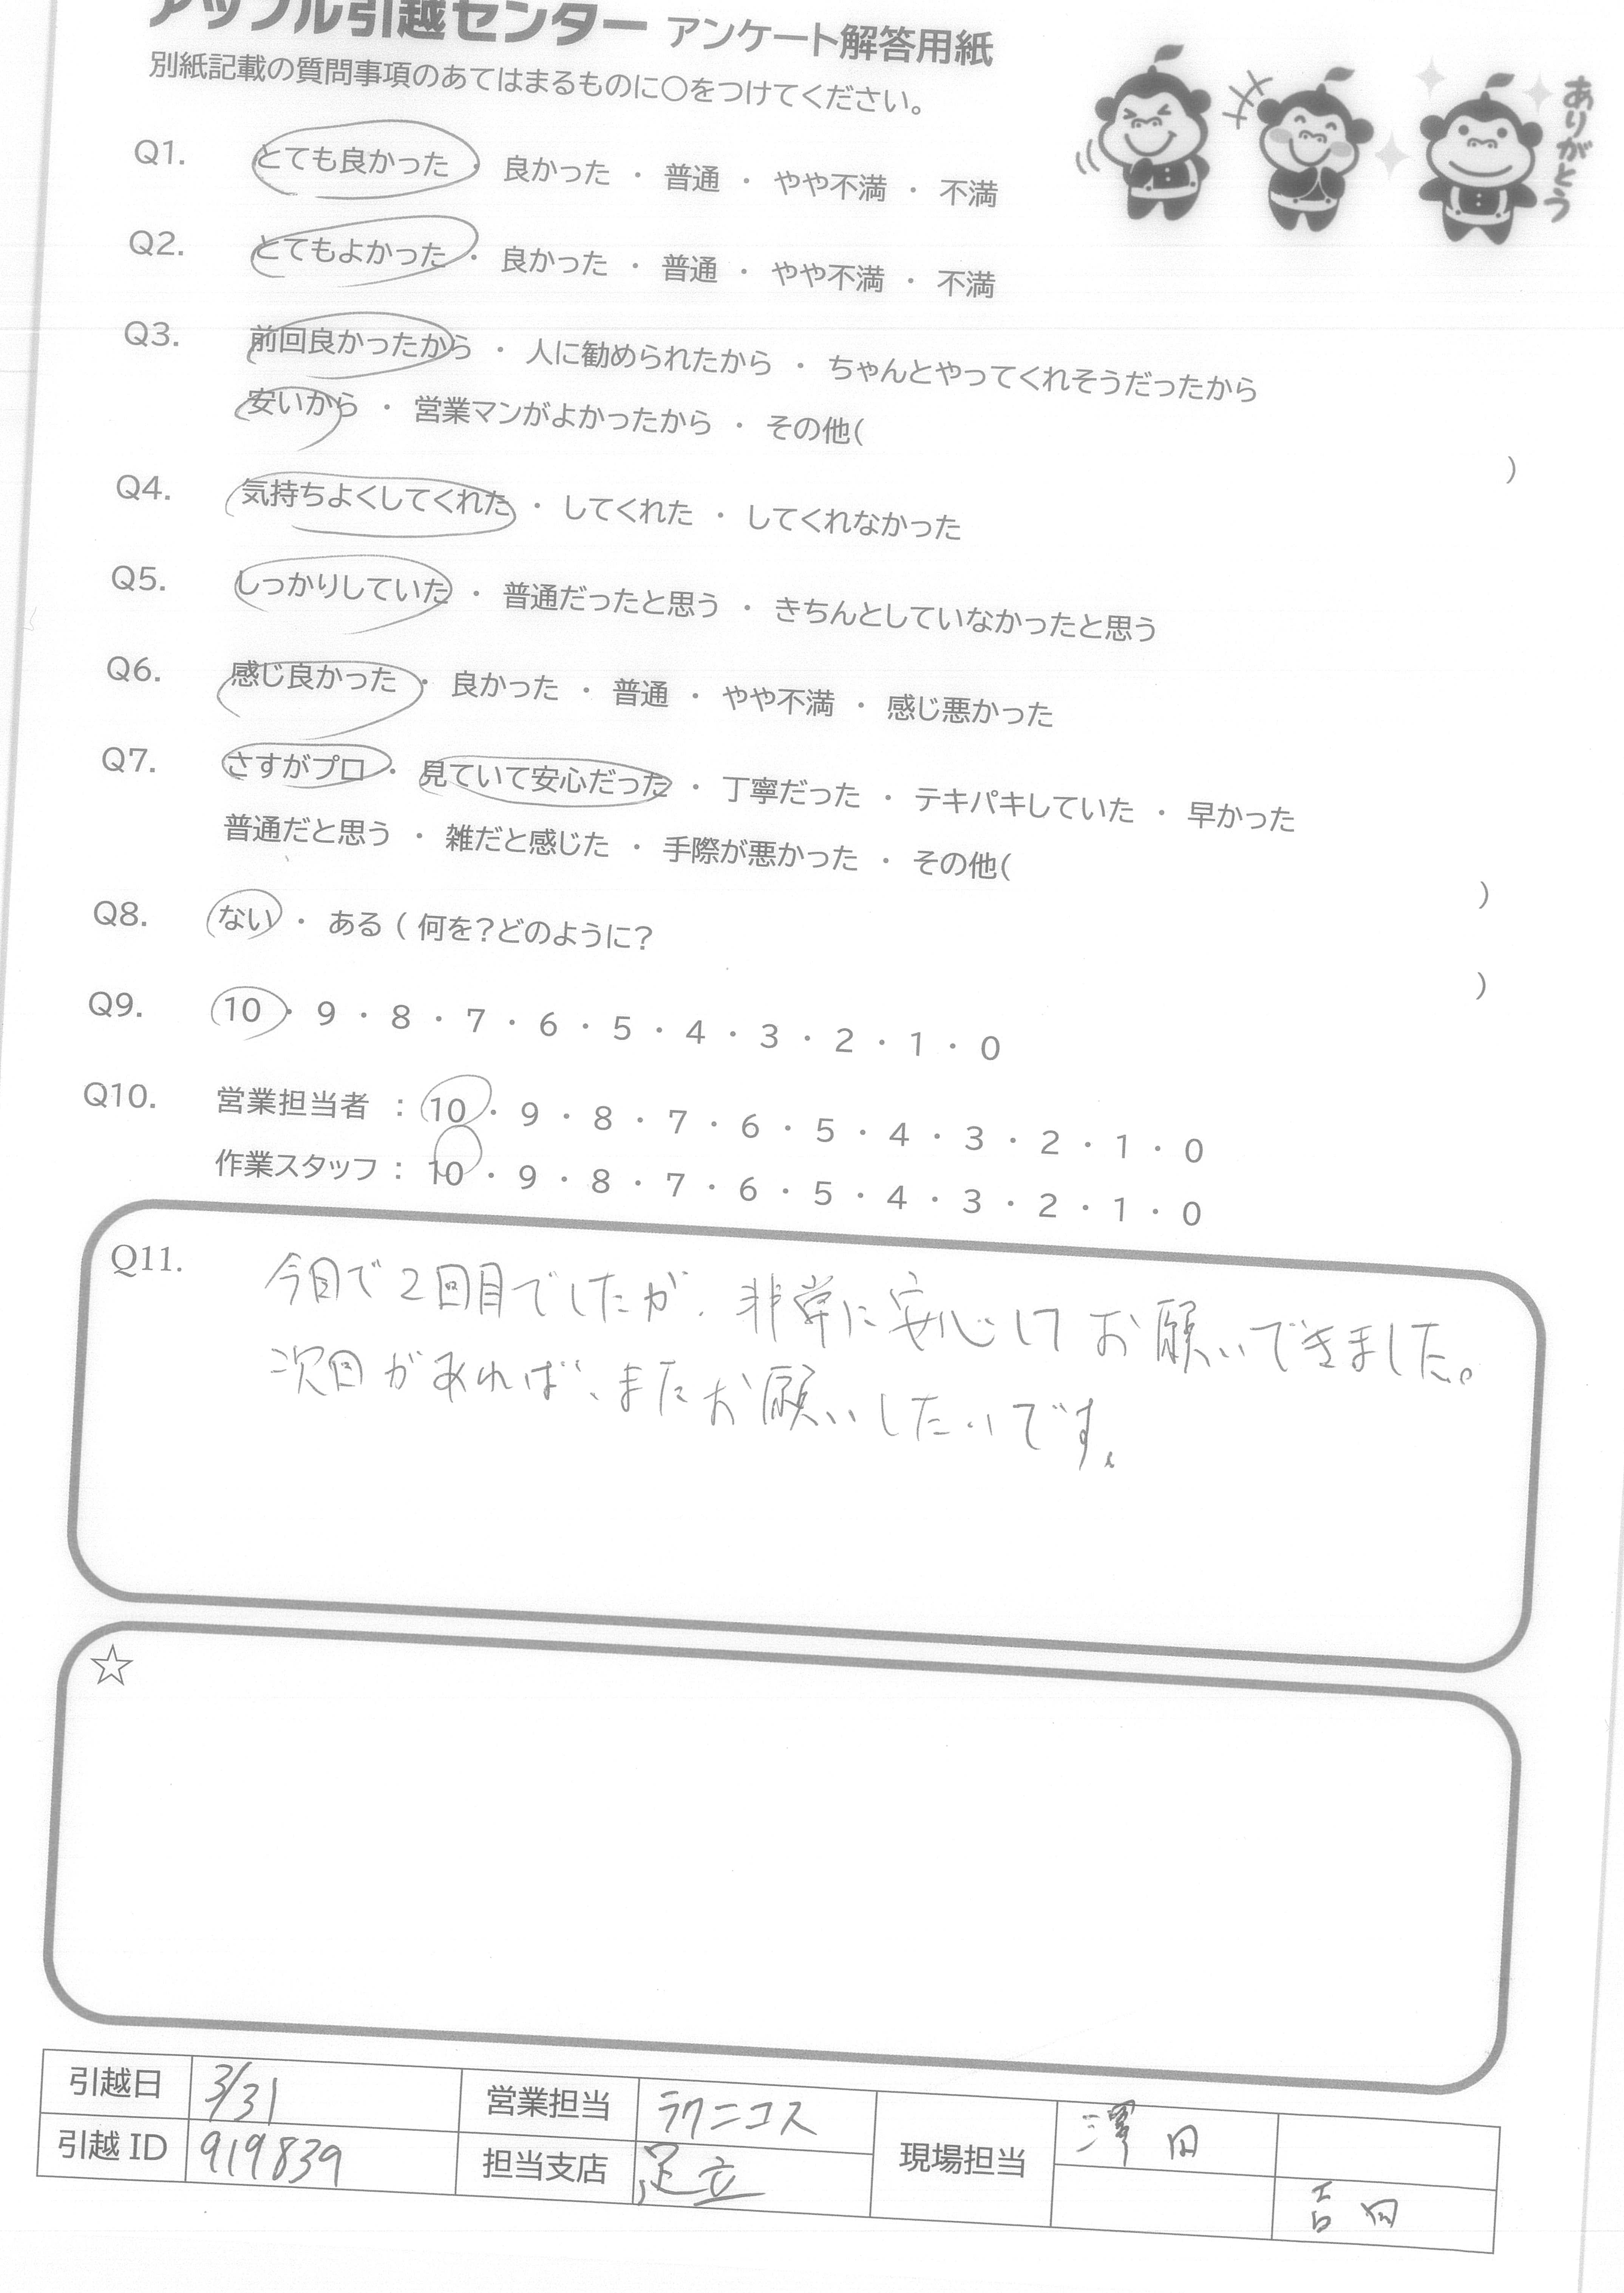 アップル引越センター アンケート解答用紙
別紙記載の質問事項のあてはまるものに○をつけてください。
ありがとう
Q1. とても良かった ・ 良かった ・ 普通 ・ やや不満 ・ 不満
Q2. とてもよかった ・ 良かった ・ 普通 ・ やや不満 ・ 不満
Q3. 前回良かったから ・ 人に勧められたから ・ ちゃんとやってくれそうだったから
安いから ・ 営業マンがよかったから ・ その他( )
Q4. 気持ちよくしてくれた ・ してくれた ・ してくれなかった
Q5. しっかりしていた ・ 普通だったと思う ・ きちんとしていなかったと思う
Q6. 感じ良かった ・ 良かった ・ 普通 ・ やや不満 ・ 感じ悪かった
Q7. さすがプロ ・ 見ていて安心だった ・ 丁寧だった ・ テキパキしていた ・ 早かった
普通だと思う ・ 雑だと感じた ・ 手際が悪かった ・ その他( )
Q8. ない ・ ある ( 何を?どのように? )
Q9. 10 ・ 9 ・ 8 ・ 7 ・ 6 ・ 5 ・ 4 ・ 3 ・ 2 ・ 1 ・ 0
Q10. 営業担当者 : 10 ・ 9 ・ 8 ・ 7 ・ 6 ・ 5 ・ 4 ・ 3 ・ 2 ・ 1 ・ 0
作業スタッフ : 10 ・ 9 ・ 8 ・ 7 ・ 6 ・ 5 ・ 4 ・ 3 ・ 2 ・ 1 ・ 0
Q11. 今回で2回目でしたが、非常に安心してお願いできました。
次回があれば、またお願いしたいです。
☆
引越日 3/31 営業担当 ラクニコス 現場担当 澤田
引越ID 919839 担当支店 足立 吉田